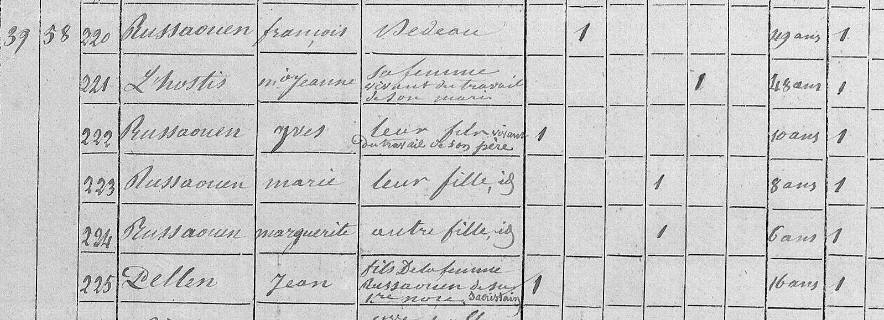 39 58 220 Russaouen françois Bedeau 1 49 ans 1
221 L'hostis mie Jeanne Sa femme 1 48 ans 1
vivant du travail
de son mari
222 Russaouen Yves leur fils vivant 1 10 ans 1
du travail de son père
223 Russaouen marie leur fille, id 1 8 ans 1
224 Russaouen marguerite autre fille, id 1 6 ans 1
225 Pellen Jean fils De la femme 1 16 ans 1
Russaouen de sa
1re noce, Sacristain